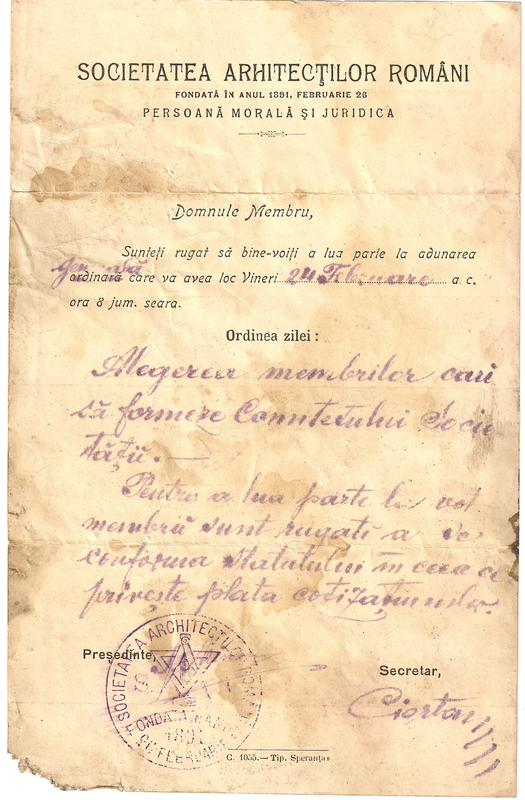 SOCIETATEA ARHITECŢILOR ROMÂNI
FONDATĂ ÎN ANUL 1891, FEBRUARIE 26
PERSOANĂ MORALĂ ŞI JURIDICA
Domnule Membru,
Sunteţi rugat să bine-voiţi a lua parte la adunarea
generală
ordinară care va avea loc Vineri 24 Februarie a. c.
ora 8 jum. seara.
Ordinea zilei:
Alegerea membrilor cari
să formeze Comitetului Socie
tăţii. —
Pentru a lua parte la vot
membrii sunt rugati a se
conforma statutului în ceea ce
priveşte plata cotizaţiunilor.
Preşedinte,
SOCIETATEA ARCHITECŢILOR ROMÂNI
FONDATĂ ÎN ANUL
1891
26 FEBRUARIE
Secretar,
Ciortan
C. 1055.— Tip. Speranţa